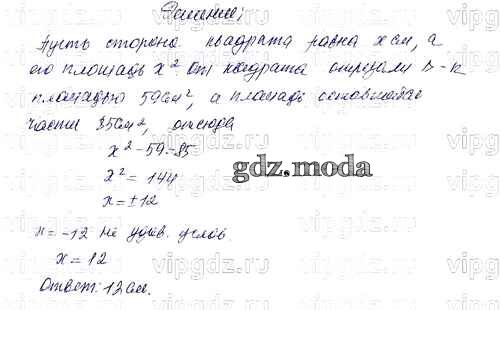 Решение:
Пусть сторона квадрата равна x см, а
его площадь x². От квадрата отрезали
площадью 59 см², а площадь оставшейся
части 85 см², отсюда
x² - 59 = 85
x² = 144
x = ±12
x = -12 не удов. услов.
x = 12
Ответ: 12 см.
gdz.moda
vipgdz.ru